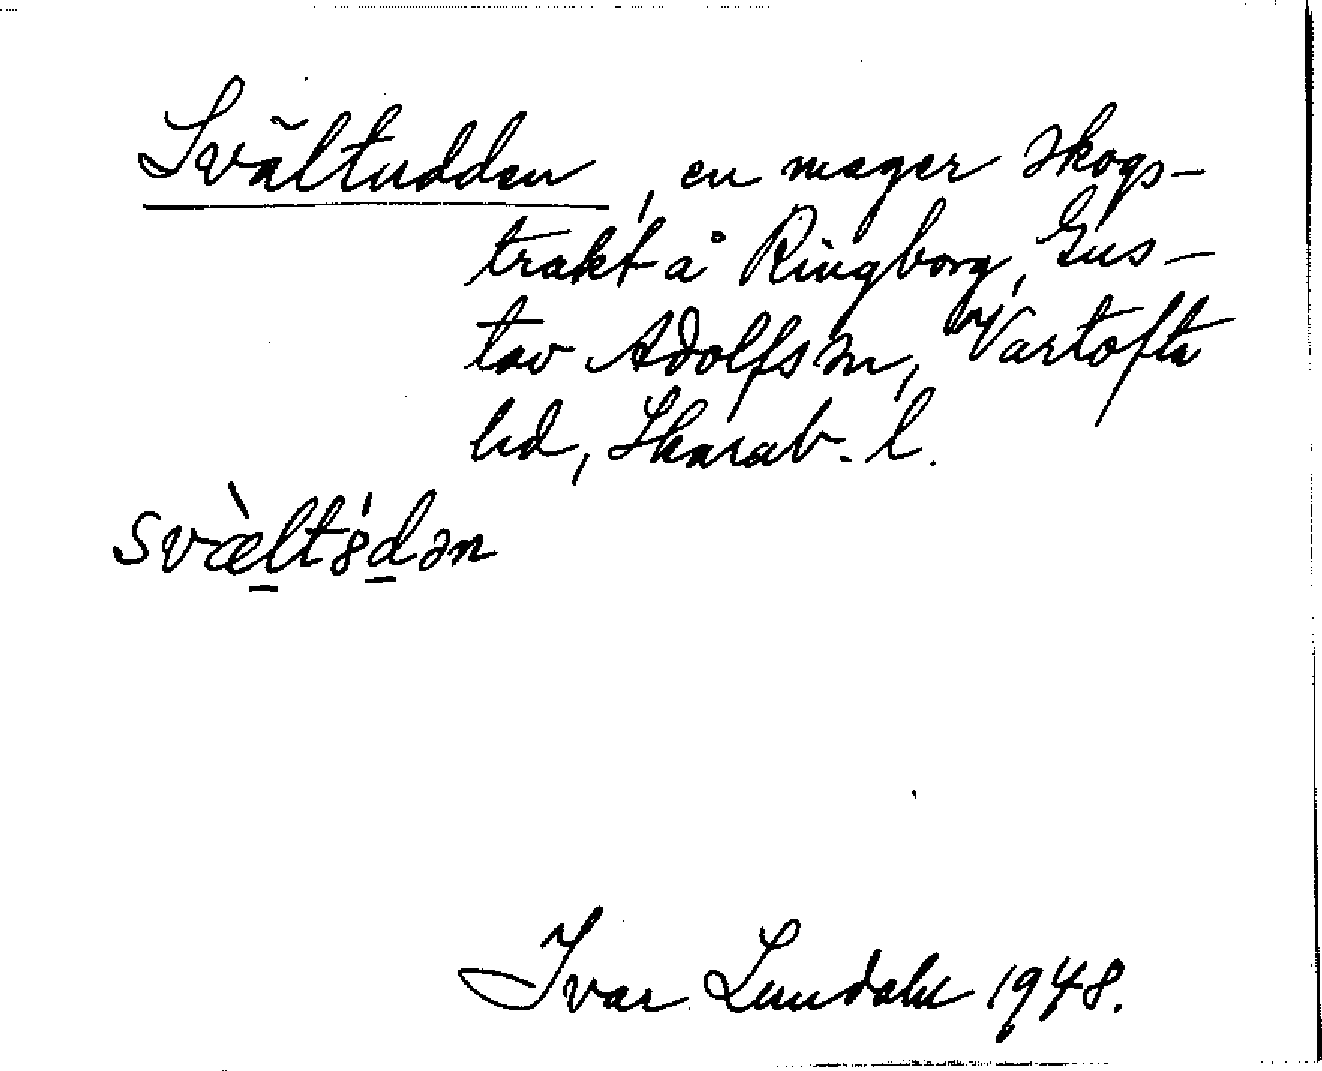 Svältudden, en mager skogs-
trakt å Ringborg, Gus-
tav Adolfs sn, Vartofta
hd, Skarab. l.
svæ̀ltꞌ8dən
Ivar Lundahl 1948.